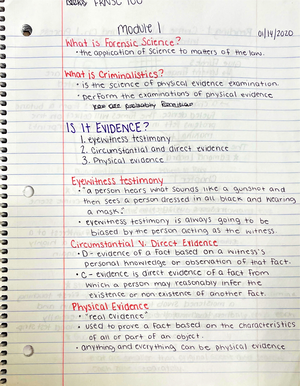 FRNSC 100
Module 1
01/14/2020
What is Forensic Science?
• the application of science to matters of the law.
What is Criminalistics?
• is the science of physical evidence examination.
• perform the examinations of physical evidence
IS IT EVIDENCE?
1. eyewitness testimony
2. Circumstantial and direct evidence
3. Physical evidence
Eyewitness testimony
• "a person hears what sounds like a gunshot and
then sees a person dressed in all black and wearing
a mask."
• eyewitness testimony is always going to be
biased by the person acting as the witness.
Circumstantial V. Direct Evidence
• D - evidence of a fact based on a witness's
personal knowledge or observation of that fact.
• C - evidence is direct evidence of a fact from
which a person may reasonably infer the
existence or non existence of another fact.
Physical Evidence
• "real evidence"
• used to prove a fact based on the characteristics
of all or part of an object.
• anything and everything can be physical evidence